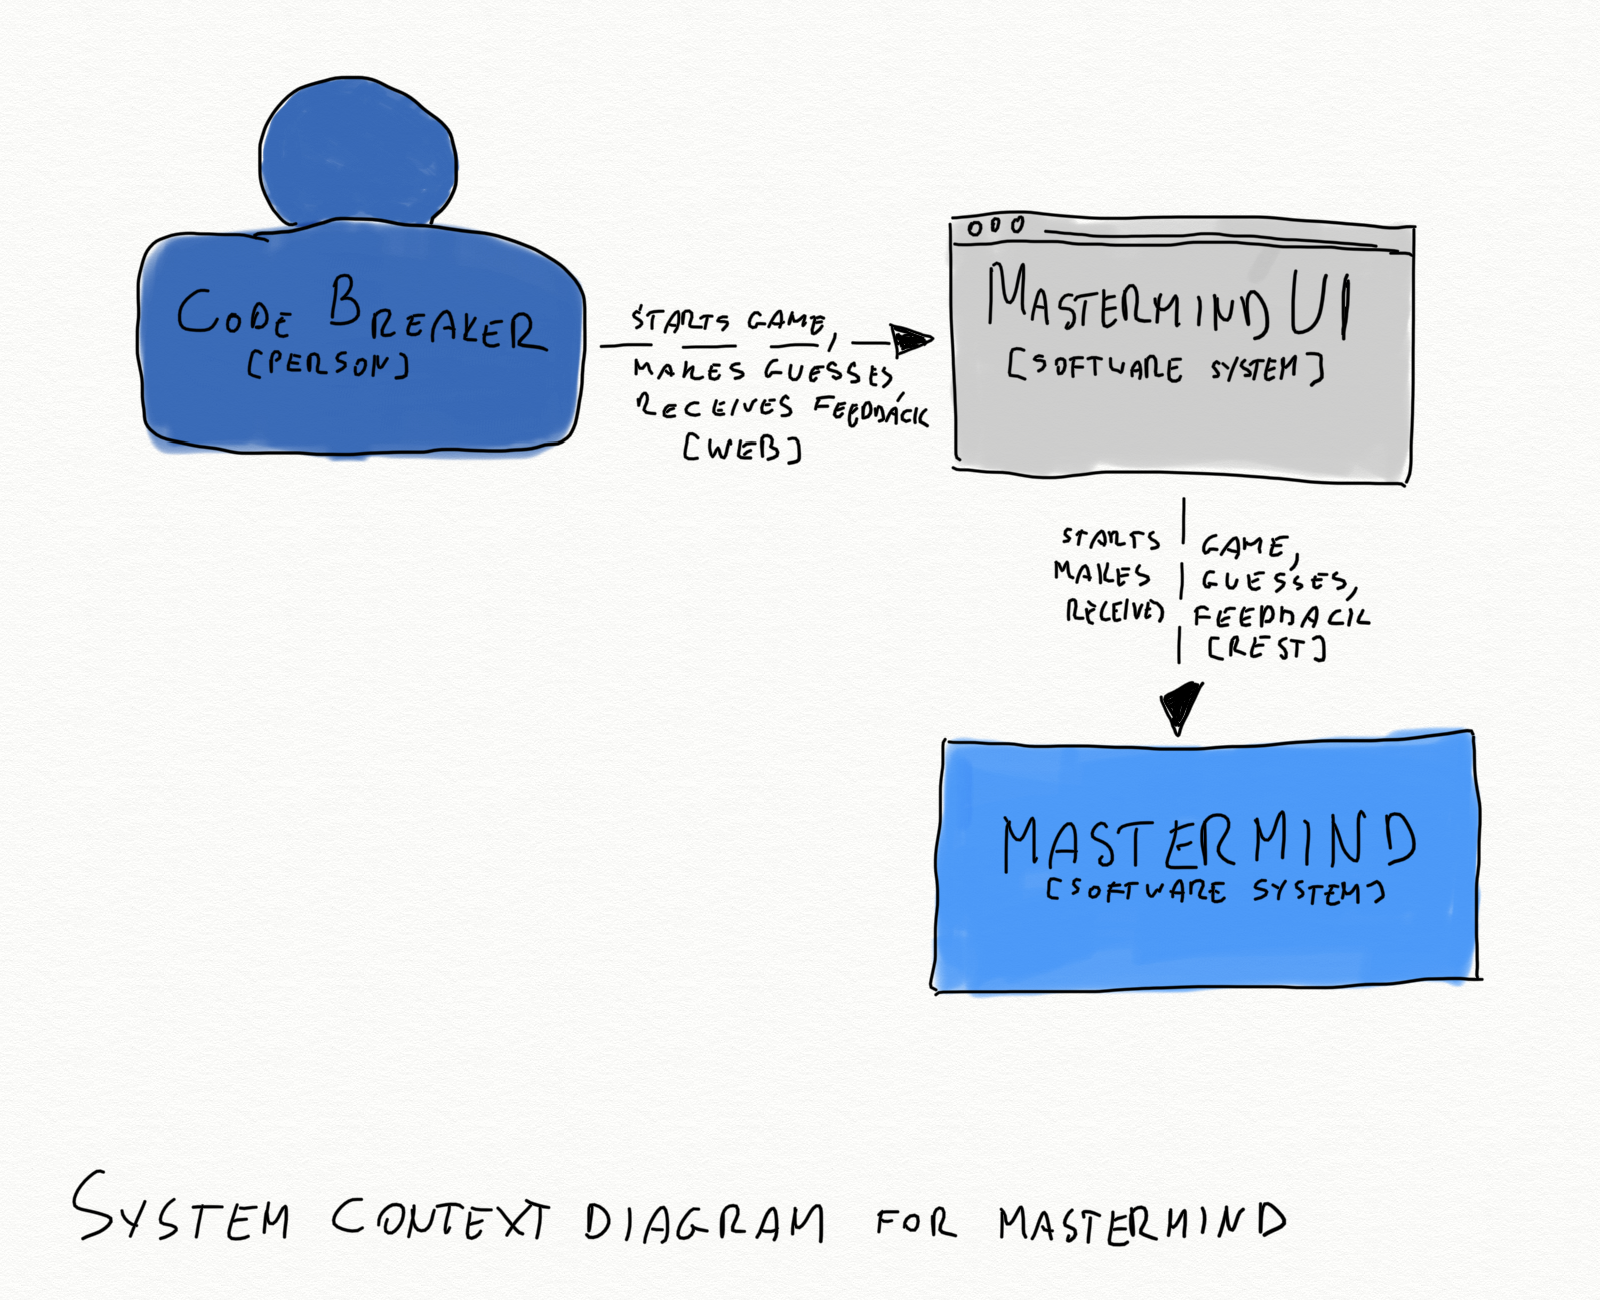 CODE BREAKER
[PERSON]
STARTS GAME,
MAKES GUESSES,
RECEIVES FEEDBACK
[WEB]
MASTERMIND UI
[SOFTWARE SYSTEM]
STARTS GAME,
MAKES GUESSES,
RECEIVES FEEDBACK
[REST]
MASTERMIND
[SOFTWARE SYSTEM]
SYSTEM CONTEXT DIAGRAM FOR MASTERMIND